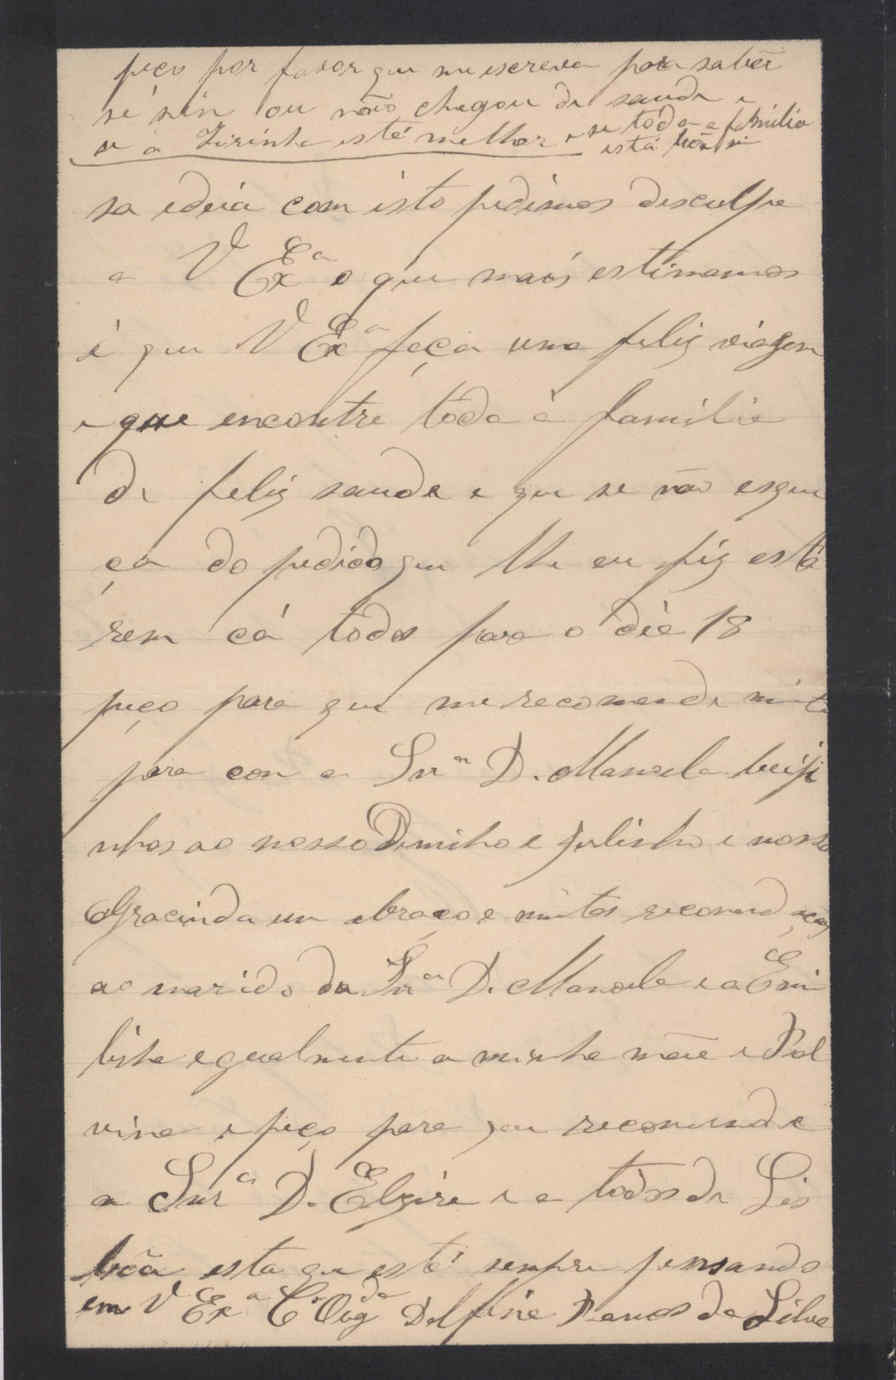 peço por favor que me escreva para saber
se sin ou não chegou de saude e
se a Zirinha está melhor e se toda a familia
está bôa
sa ideia com isto pedimos desculpe
a V Exª o que mais estimamos
é que V Exª faça uma feliz viagem
e que encontre toda a familia
de feliz saude e que se não esque
ça do pedido que lhe eu fiz está
rem cá todos para o dia 18
peço para que me recomende muito
para con a Snrª D. Manoela beiji
nhos ao nosso e Julinho e nossa
Gracinda um abraço e muitas recomendações
ao marido da Snrª D. Manoela e a Emi
linha egualmente a minha mãe e Pal
vina e peço para que recomende
a Snrª D. Elzira e a todos de Lis
bôa esta que está sempre pensando
em V Exª Cª Obgda Delfina Ramos da Silva